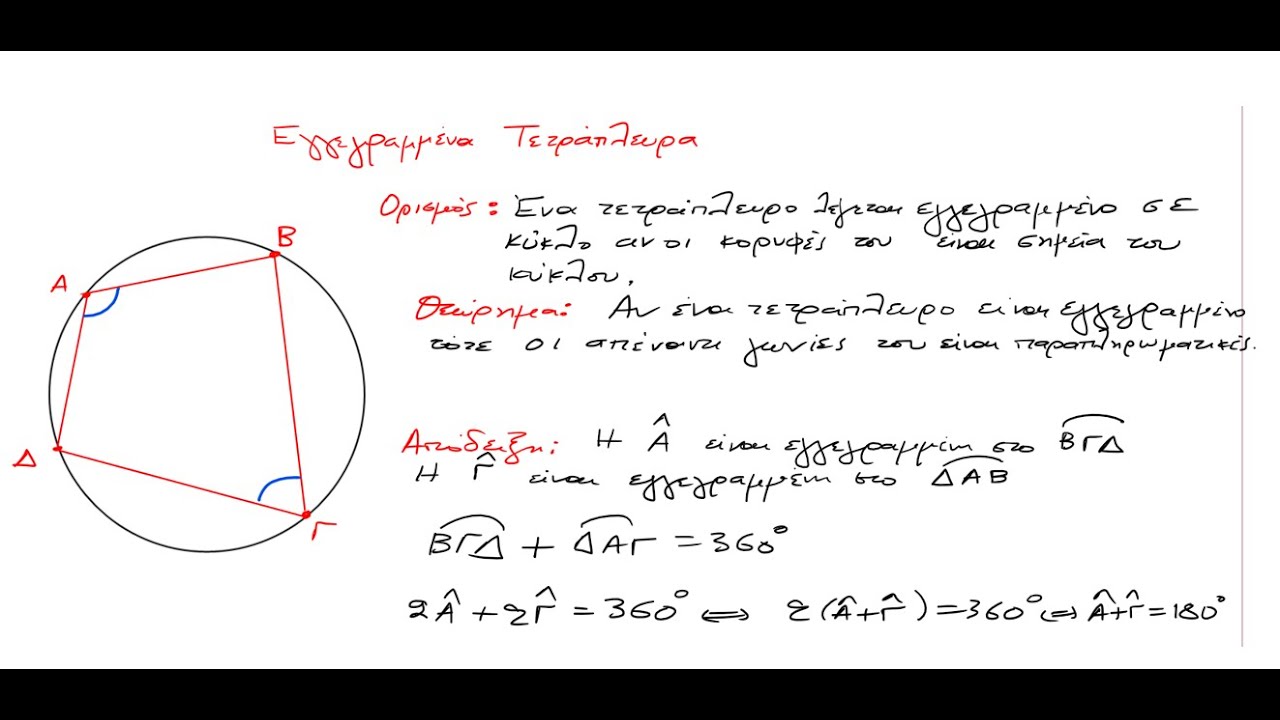 Εγγεγραμμένα Τετράπλευρα
Ορισμός: Ένα τετράπλευρο λέγεται εγγεγραμμένο σε
κύκλο αν οι κορυφές του είναι σημεία του
κύκλου.
Θεώρημα: Αν ένα τετράπλευρο είναι εγγεγραμμένο
τότε οι απέναντι γωνίες του είναι παραπληρωματικές.
Απόδειξη: Η Â είναι εγγεγραμμένη στο B͡ΓΔ
Η Γ̂ είναι εγγεγραμμένη στο Δ͡ΑΒ
B͡ΓΔ + Δ͡ΑΓ = 360°
2Â + 2Γ̂ = 360° ⟺ 2(Â+Γ̂) = 360° ⟺ Â+Γ̂ = 180°
Β
Α
Δ
Γ